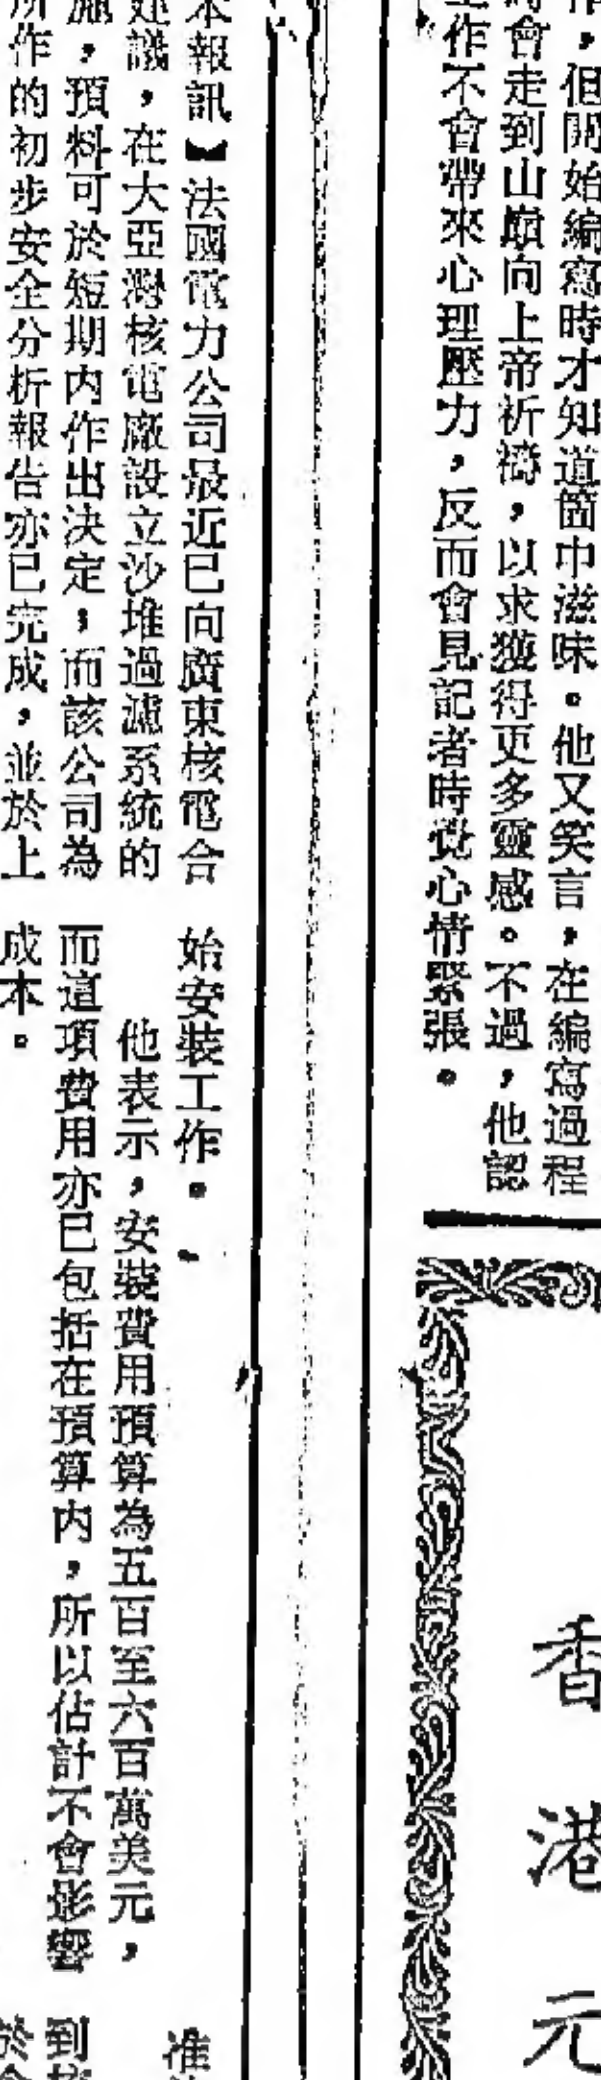 作，但開始編寫時才知道箇中滋味。他又笑言，在編寫過程
會走到山嶺向上帝祈禱，以求獲得更多靈感。不過，他認
工作不會帶來心理壓力，反而會見記者時覺心情緊張。
香港元
本報訊】法國電力公司最近已向廣東核電合
建議，在大亞灣核電廠設立沙堆過濾系統的
施，預料可於短期內作出決定，而該公司為
所作的初步安全分析報告亦已完成，並於上
始安裝工作。
他表示，安裝費用預算為五百至六百萬美元，
而這項費用亦已包括在預算內，所以估計不會影響
成本。
准
到
於